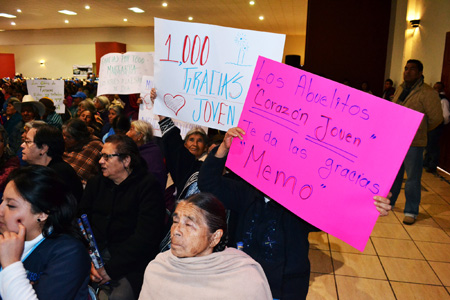 1,000
GRACIAS
JOVEN
Los Abuelitos
"Corazón Joven"
Te da las gracias
"Memo"